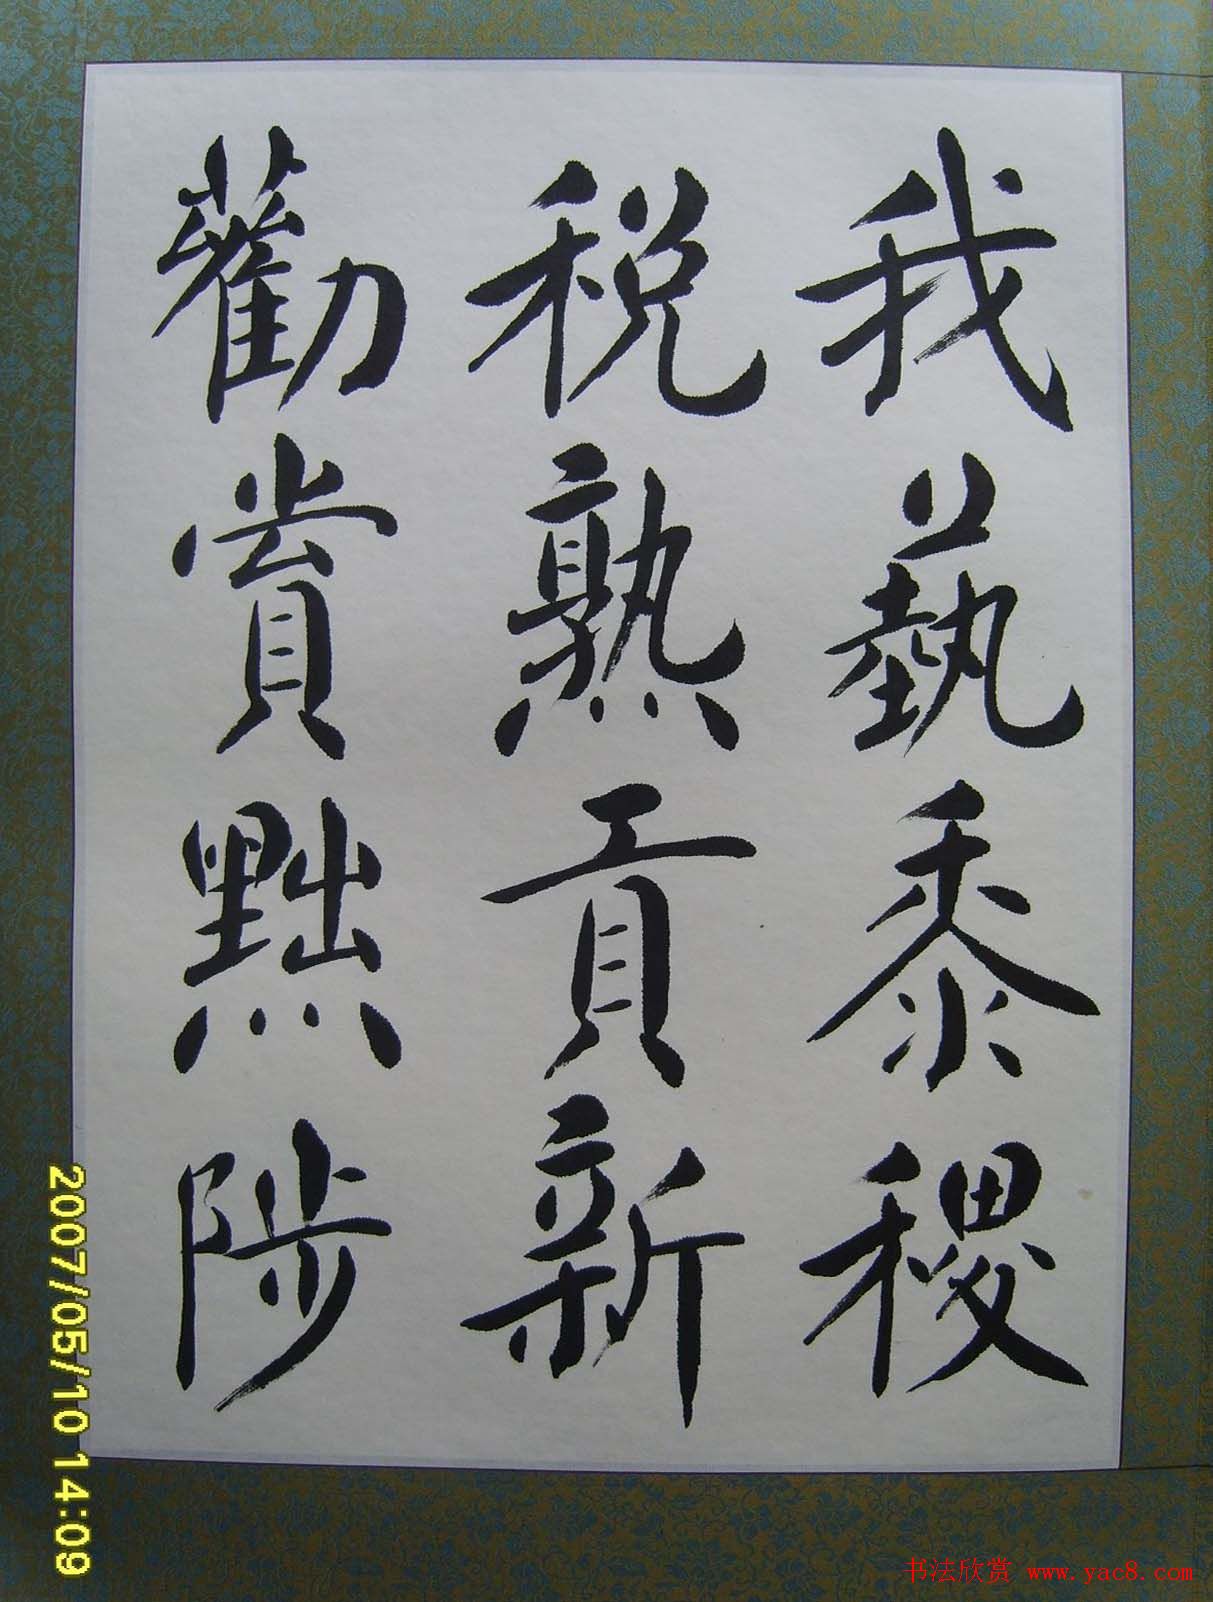 我藝黍稷
税熟貢新
勸賞黜陟
2007/05/10 14:09
书法欣赏 www.yac8.com